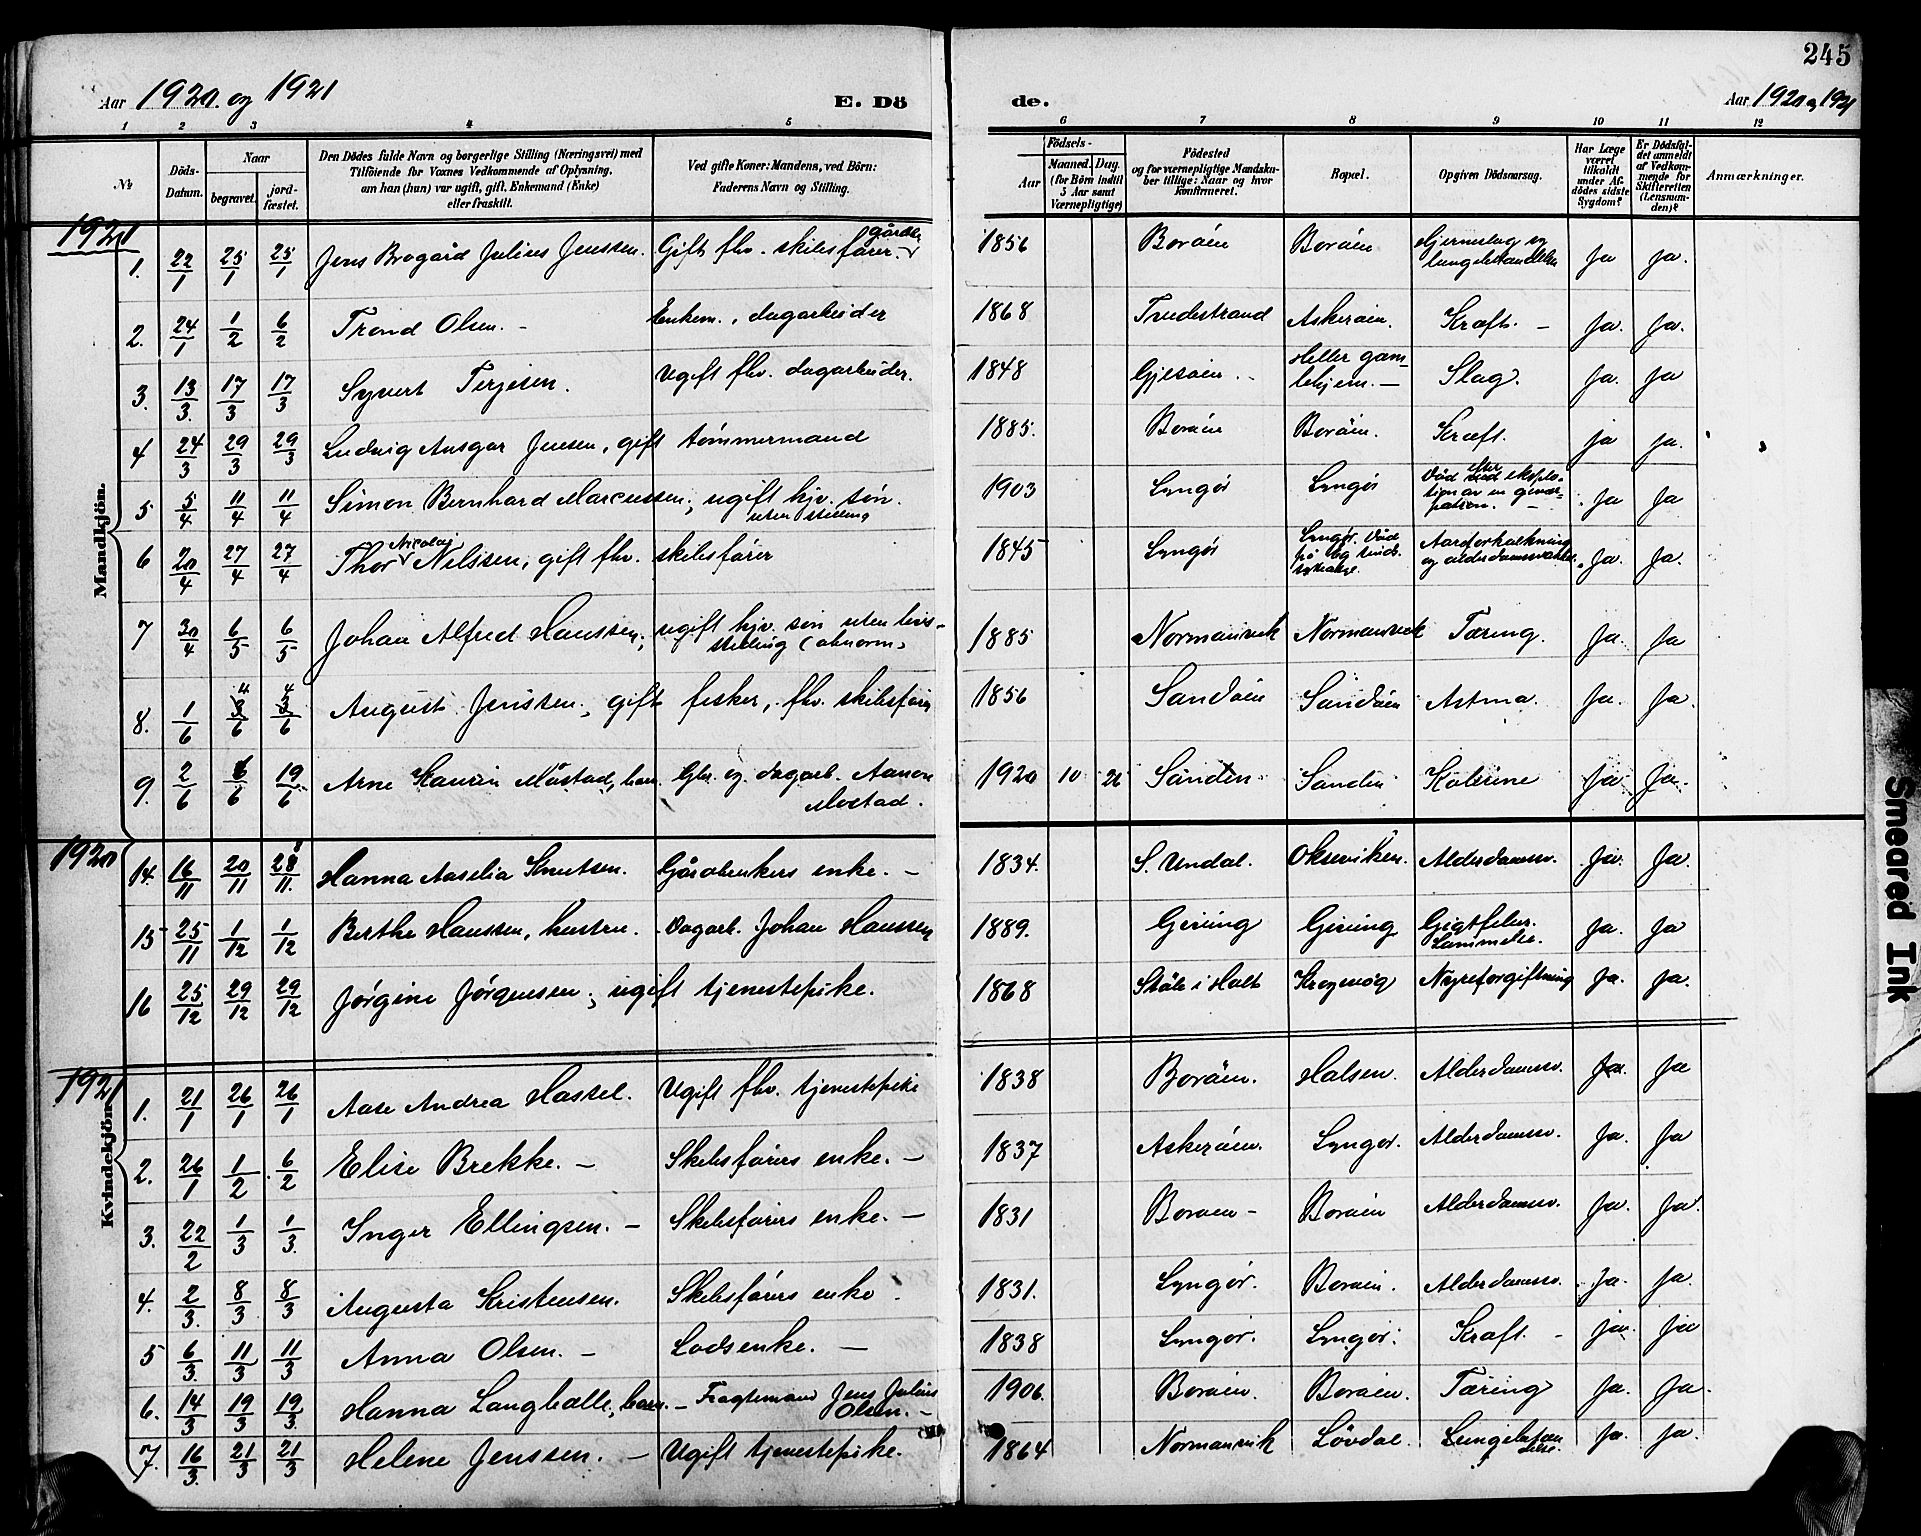 245
Aar 1920 og 1921
E. Dö
de.
Aar 1920 og 1921
1 2 3 4 5 6 7 8 9 10 11 12
No
Döds-
Datum.
Naar
begravet.
jord-
fæstet.
Den Dödes fulde Navn og borgerlige Stilling (Næringsvei) med
Tilföiende for Voxnes Vedkommende af Oplysning,
om han (hun) var ugift, gift, Enkemand (Enke)
eller fraskilt.
Ved gifte Koner: Mandens, ved Börn:
Faderens Navn og Stilling.
Födsels-
Aar
Maaned. Dag.
(for Börn indtil
5 Aar samt
Værnepligtige)
Födested
og for værnepligtige Mandska-
ber tillige: Naar og hvor
Konfirmeret.
Bopæl.
Opgiven Dödsaarsag.
Har Læge
været
tilkaldt
under Af-
dödes sidste
Sygdom?
Er Dödsfal-
det anmeldt
af Vedkom-
mende for
Skifteretten
(Lensman-
den)?
Anmærkninger.
1921
Mandkjön.
1. 22/1 25/1 25/1 Jens Brogård Julius Jenssen. Gift fhv. skibsfører. gårdbr. 1856 Borøen Borøen Hjerneslag og lungebetændelse Ja Ja.
2. 24/1 1/2 6/2 Trond Olsen. - Enkem., dagarbeider 1868 Tvedestrand Askerøen. Kræft. - Ja. Ja.
3. 13/3. 17/3 17/3 Syvert Terjesen. Ugift fhv. dagarbeider. 1848 Gjesøen. - Heller gamlehjem. - Slag. Ja. Ja
4 24/3 29/3 29/3 Ludvig Ansgar Jensen, gift tømmermand 1885. Borøen Borøen. Kræft. ja ja.
5 5/4 11/4 11/4 Simon Bernhard Marcussen; ugift hjv. søn. uten stilling 1903 Lyngør Lyngør Død efter eksplosion av en geværpatron. - Ja Ja
6 20/4 27/4 27/4 Thor Nicolai Nilssen, gift fhv. skibsfører 1845 Lyngør Lyngør. Død på og sinds. Aareforkalkning og alderdomssvakhet. Ja. Ja.
7 30/4 6/5 6/5 Johan Alfred Hanssen; ugift hjv. søn uten livsstilling (abnorm) 1885 Normansvik Normansvik Tæring. Ja. Ja
8. 1/6 4/6 4/6 August Jenssen, gift fisker, fhv. skibsfører 1856 Sandøen Sandøen Astma. Ja. Ja.
9. 2/6 6/6 19/6 Arne Kaurin Møstad, barn. Gbr. og dagarb. Aanon Mostad. 1920 10 26 Sanden Sanden Kolerine Ja. Ja.
1920
14. 16/11 20/11 28/11. Hanna Aaselia Knutsen. Gårdbrukers enke. - 1834. S. Undal. Okseviken. Alderdomssv. Ja. Ja.
15 25/11 1/12 1/12 Berthe Hanssen, hustru. Dagarb. Johan Hanssen 1889. Geving Geving Gigtfeber. Ja. Ja
16 25/12 29/12 29/12 Jørgine Jørgensen; ugift tjenestepike. 1868 Støle i Holt Nyreforgiftning Ja. Ja.
1921
Kvindekjön.
1. 21/1 26/1 26/1 Aase Andrea Hassel. Ugift fhv. tjenestepike 1838 Borøen. Halsen. Alderdomssv. Ja. Ja
2. 26/1 1/2 6/2 Elise Brekke. - Skibsførers enke. - 1837 Askerøen. Lyngør. Alderdomssv. Ja. Ja
3. 22/2 1/3 1/3. Inger Ellingsen. - Skibsførers enke. - 1831 Borøen - Borøen Alderdomssv. Ja. Ja.
4. 2/3. 8/3 8/3 Augusta Kristensen. Skibsførers enke. 1831. Lyngør. Borøen. Alderdomssv. Ja. Ja.
5 6/3. 11/3 11/3 Anna Olsen. - Losdsenke. - 1838 Lyngør. Lyngør. Kræft. - ja. Ja
6. 14/3 19/3 19/3. Hanna Langballe, barn. - Fragtemand Jens Julius Olsen. - 1906. Borøen. Borøen. Tæring Ja. Ja.
7. 16/3. 21/3 21/3 Helene Jenssen. - Ugift tjenestepike. 1864 Normansvik Løvdal. Lungebetændelse. Ja. Ja.
Smeared Ink